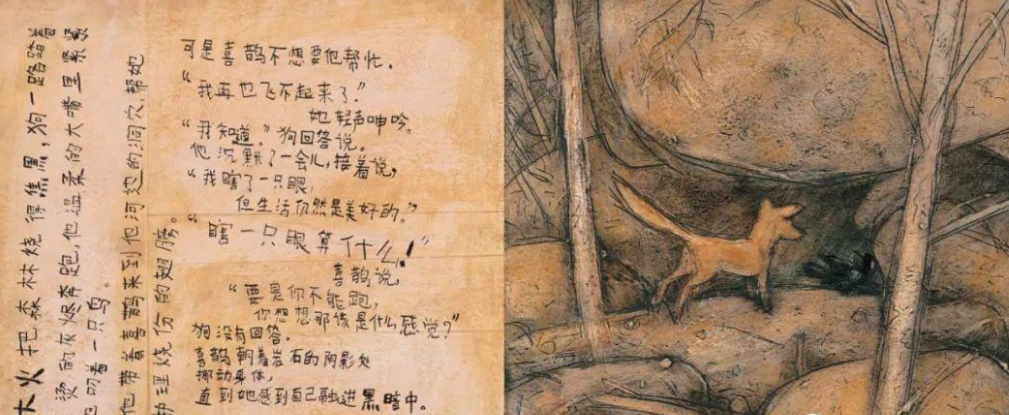 大火把森林烧得焦黑，狗一路踏着
烫的灰烬奔跑，他温柔的大嘴里紧紧
叼着一只鸟。
他带着喜鹊来到他河边的洞穴，帮她
护理烧伤的翅膀。
可是喜鹊不想要他帮忙。
“我再也飞不起来了。”
她轻声呻吟。
“我知道。”狗回答说。
他沉默了一会儿，接着说，
“我瞎了一只眼，
但生活仍然是美好的。”
“瞎一只眼算什么！”
喜鹊说，
“要是你不能跑，
你想想那该是什么感觉？”
狗没有回答。
喜鹊朝着岩石的阴影处
挪动身体，
直到她感到自己融进黑暗中。